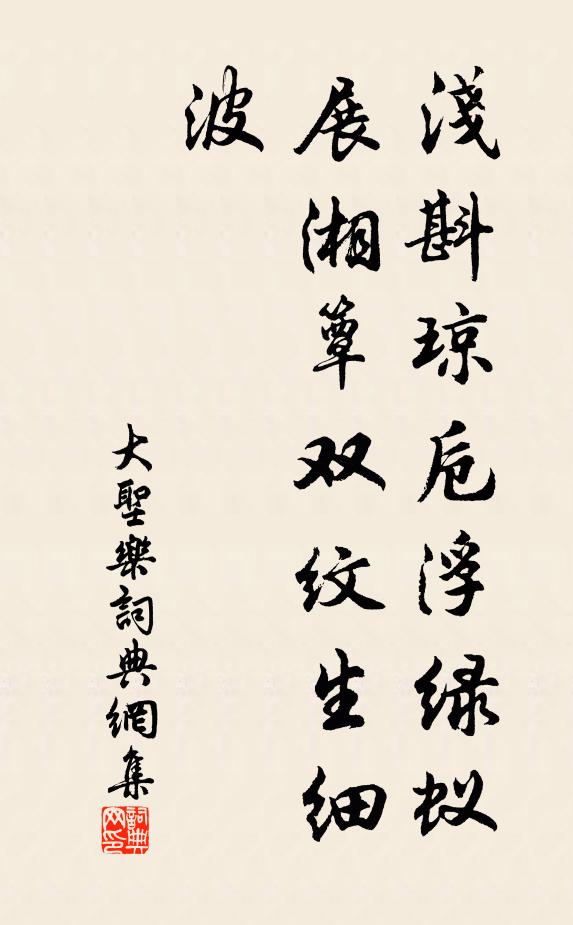 淺斟琼卮浮绿蚁
展湘簟双纹生细
波
大聖樂詞典網集
詞典网印